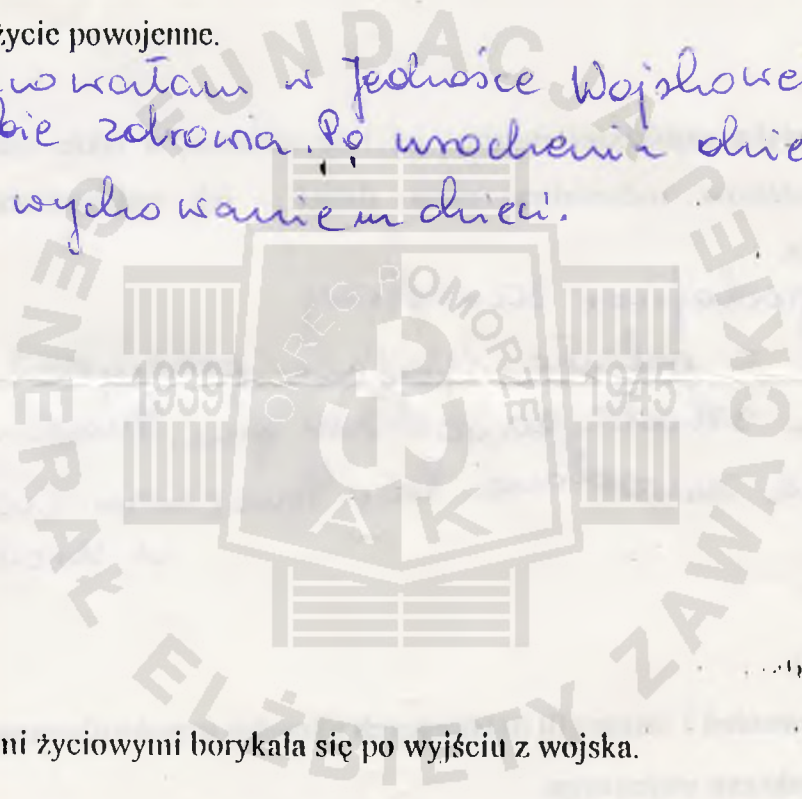 życie powojenne.
wowałam w Jednosce Wojskowe
bie zdrowia. Po urodzeniu dzie
wychowaniem dzieci.
FUNDACJA GENERAŁ ELŻBIETY ZAWACKIEJ
OKRĘG POMORZE
1939
1945
AK
ni życiowymi borykała się po wyjściu z wojska.